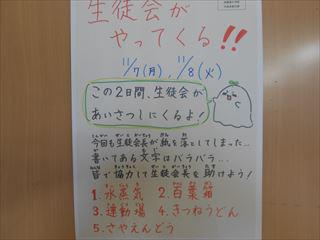 生徒会が
やってくる!!
11/7(月), 11/8(火)
この2日間、生徒会が
あいさつしにくるよ!
今回も生徒会長が紙を落としてしまった…
書いてある文字はバラバラ…
皆で協力して生徒会長を助けよう!
1.水蒸気 2.百葉箱
3.運動場 4.きつねうどん
5.さやえんどう